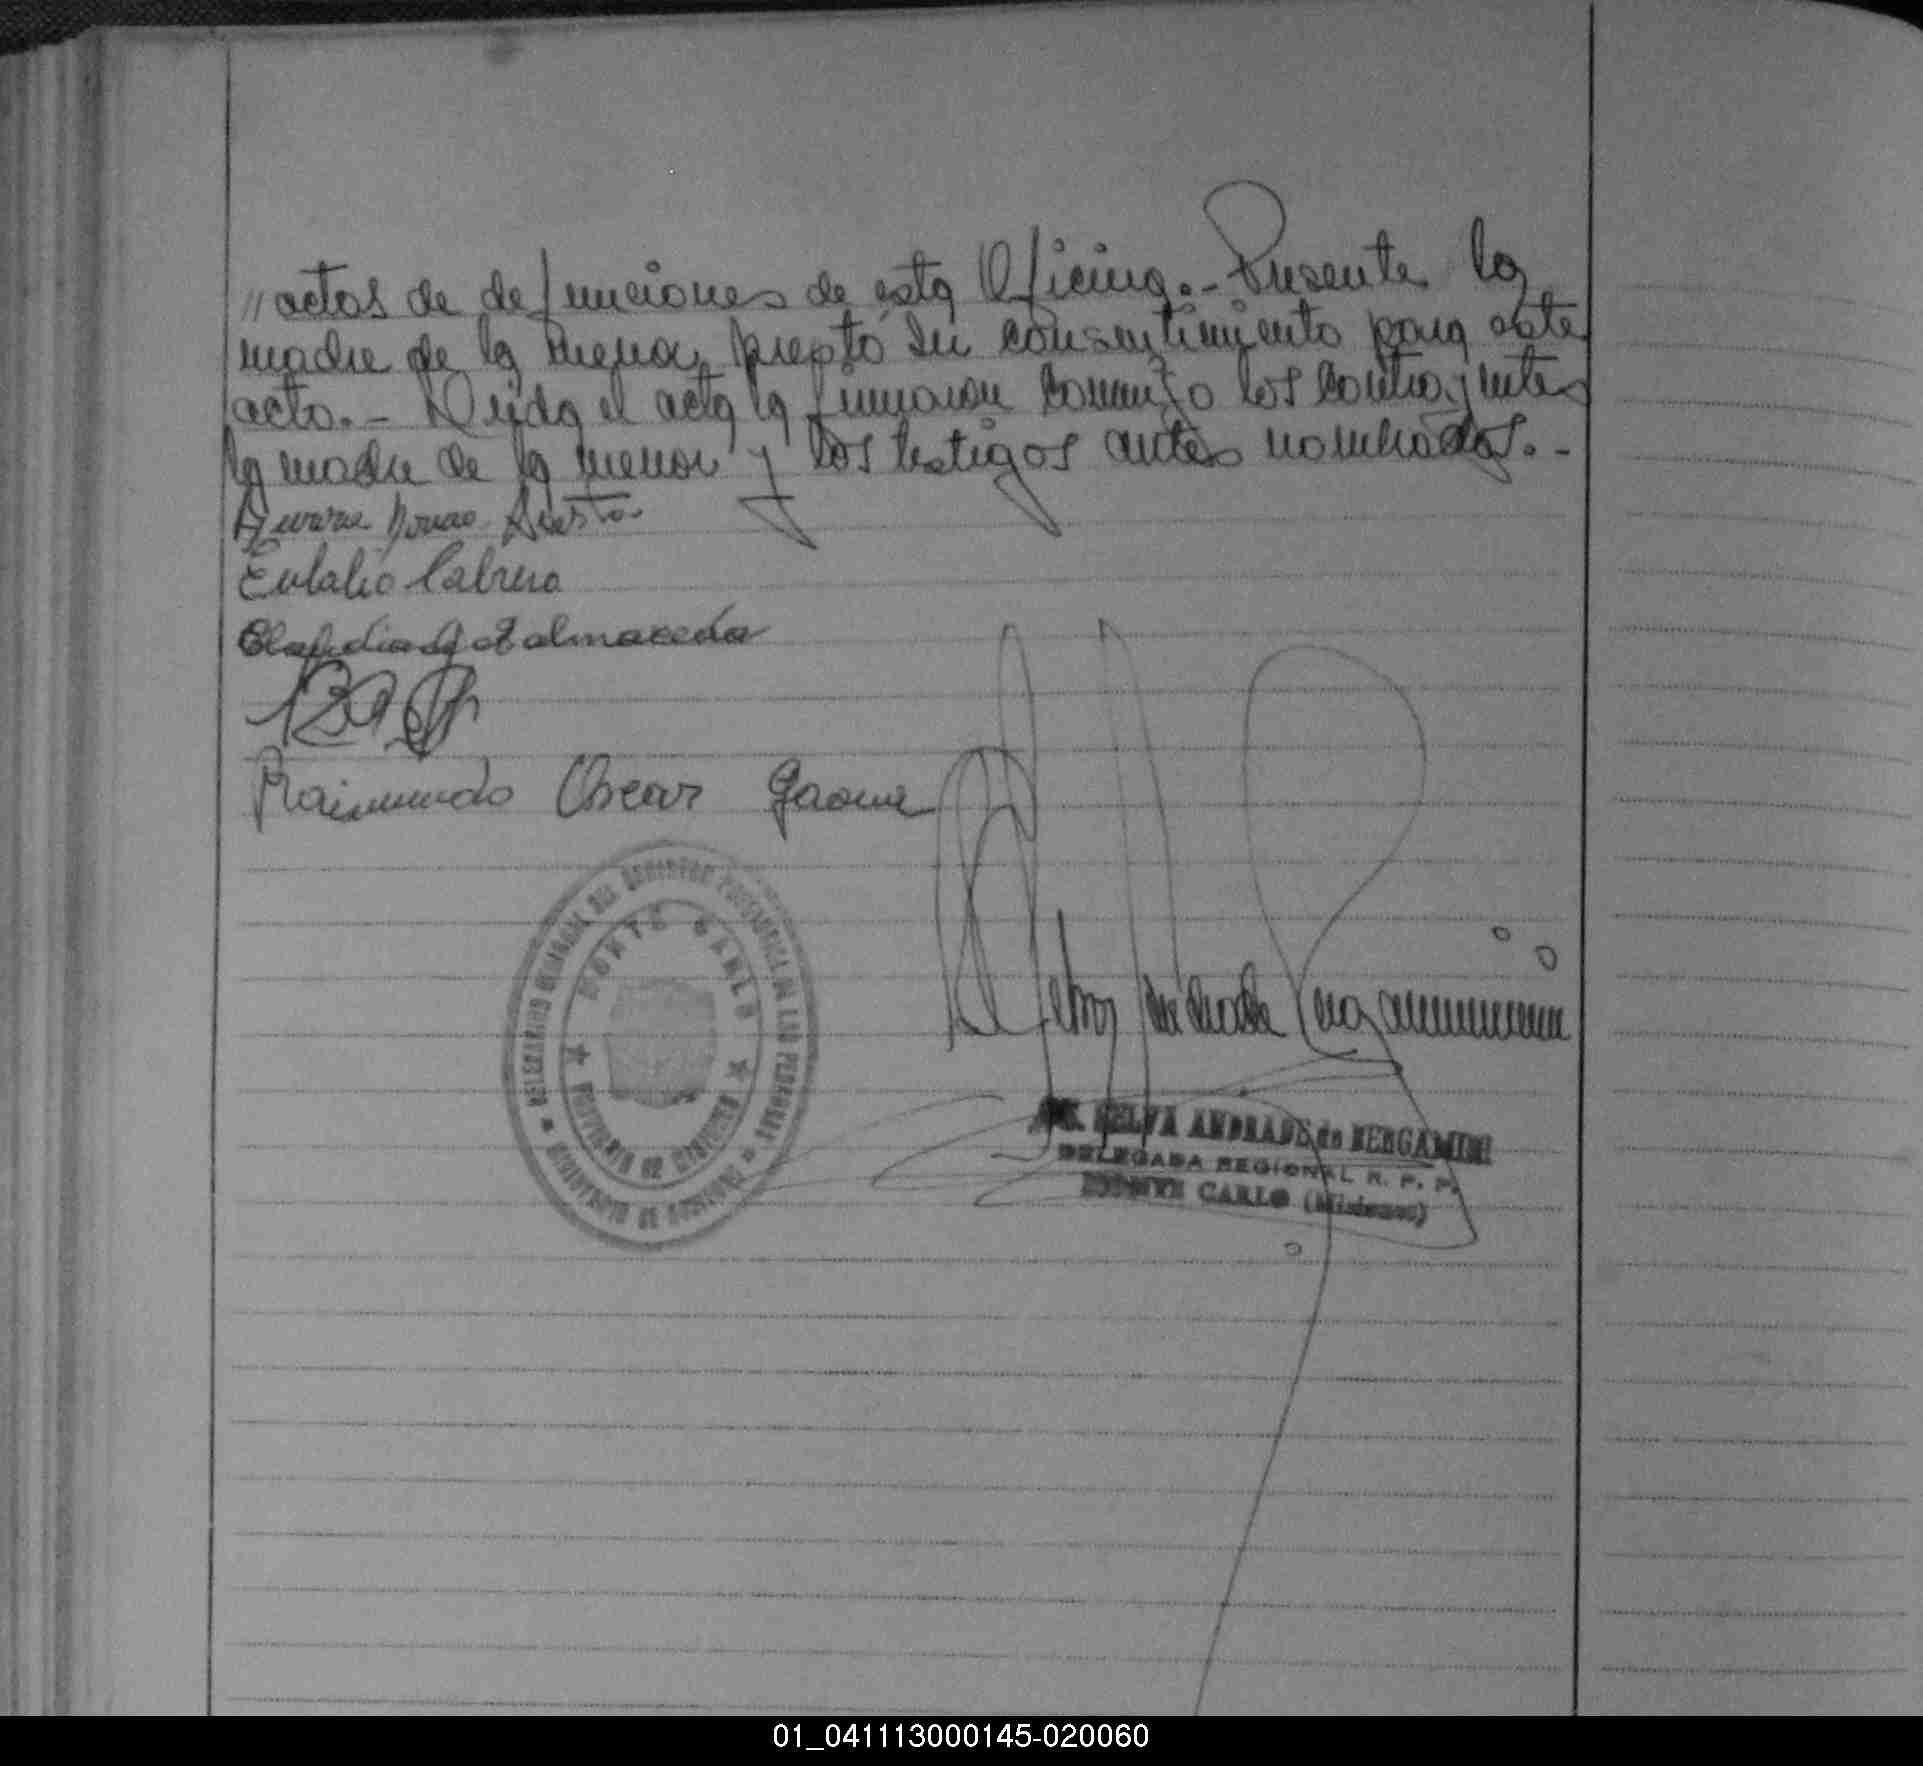 //actas de defunciones de esta Oficina.- Presente la
madre de la menor, prestó su consentimiento para este
acto.- Leída el acta la firmaron conmigo los contrayentes
la madre de la menor y los testigos antes nombrados.-
Acosta
Eulalio Cabrera
Almaceda
Raimundo Oscar Gaona
DELEGACION REGIONAL DEL REGISTRO PROVINCIAL DE LAS PERSONAS
MONTE CARLO
PROVINCIA DE MISIONES
SELVA ANDRADE de BERGAMINI
DELEGADA REGIONAL R. P. P.
MONTE CARLO (Misiones)
01_041113000145-020060